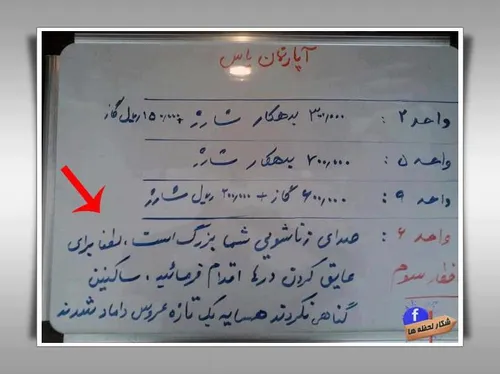 آپارتمان یاس
واحد ۲ : ۳۰۰,۰۰۰ بدهکار شارژ + ۱۵۰,۰۰۰ ریال گاز
واحد ۵ : ۷۰۰,۰۰۰ بدهکار شارژ
واحد ۹ : ۶۰۰,۰۰۰ گاز + ۲۰۰,۰۰۰ ریال شارژ
واحد ۶ : صدای زناشویی شما بزرگ است ، لطفا برای
عایق کردن درها اقدام فرمائید ، ساکنین
گناهی نکردند همسایه یک تازه عروس داماد شدند
اخطار سوم
شکار لحظه ها
f